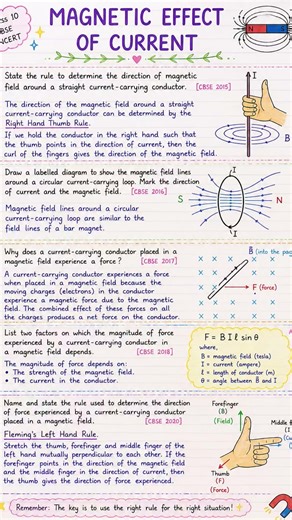 MAGNETIC EFFECT
OF CURRENT
10
State the rule to determine the direction of magnetic
field around a straight current-carrying conductor. [CBSE 2015]
The direction of the magnetic field around a straight
current-carrying conductor can be determined by the
Right Hand Thumb Rule.
If we hold the conductor in the right hand such that
the thumb points in the direction of current, then the
curl of the fingers gives the direction of the magnetic field.
N
I
B
Draw a labelled diagram to show the magnetic field lines
around a circular current-carrying loop. Mark the direction
of current and the magnetic field. [CBSE 2016]
Magnetic field lines around a circular
current-carrying loop are similar to the
field lines of a bar magnet.
I
S
N
Why does a current-carrying conductor placed in a
magnetic field experience a force? [CBSE 2017]
A current-carrying conductor experiences a force
when placed in a magnetic field because the
moving charges (electrons) in the conductor
experience a magnetic force due to the magnetic
field. The combined effect of these forces on all
the charges produces a net force on the conductor.
B (into the
F (force)
List two factors on which the magnitude of force
experienced by a current-carrying conductor in
a magnetic field depends. [CBSE 2018]
The magnitude of force depends on:
• The strength of the magnetic field.
• The current in the conductor.
F = B I ℓ sin θ
where,
B = magnetic field (tesla)
I = current (ampere)
ℓ = length of conductor (m)
θ = angle between B and I
Name and state the rule used to determine the direction
of force experienced by a current-carrying conductor
placed in a magnetic field. [CBSE 2020]
Fleming's Left Hand Rule.
Stretch the thumb, forefinger and middle finger of the
left hand mutually perpendicular to each other. If the
forefinger points in the direction of the magnetic field
and the middle finger in the direction of current, then
the thumb gives the direction of force experienced.
Forefinger
(B)
(Field)
Middle
(I)
Thumb
(F)
(Force)
Remember: The key is to use the right rule for the right situation!